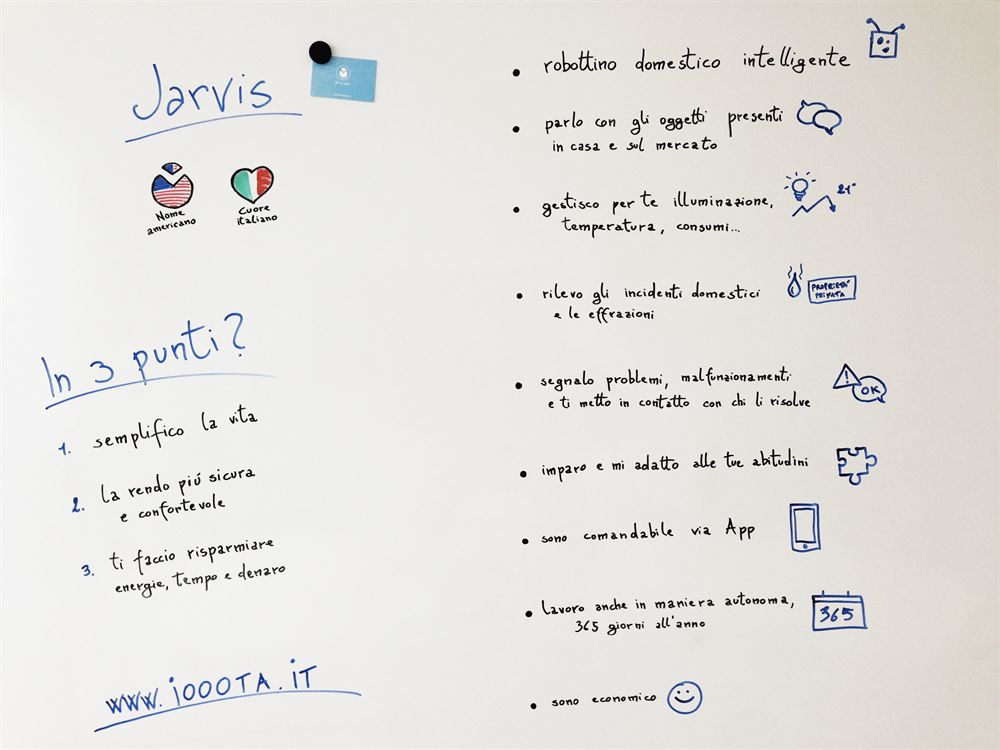 Jarvis
Nome
americano
Cuore
italiano
In 3 punti?
1. semplifico la vita
2. la rendo piú sicura
e confortevole
3. ti faccio risparmiare
energie, tempo e denaro
www.ioooTA.iT
• robottino domestico intelligente
• parlo con gli oggetti presenti
in casa e sul mercato
• gestisco per te illuminazione,
temperatura, consumi...
21°
• rilevo gli incidenti domestici
e le effrazioni
PROPRIETA'
PRIVATA
• segnalo problemi, malfunzionamenti
e ti metto in contatto con chi li risolve
!
OK
• imparo e mi adatto alle tue abitudini
• sono comandabile via App
• lavoro anche in maniera autonoma,
365 giorni all'anno
365
• sono economico